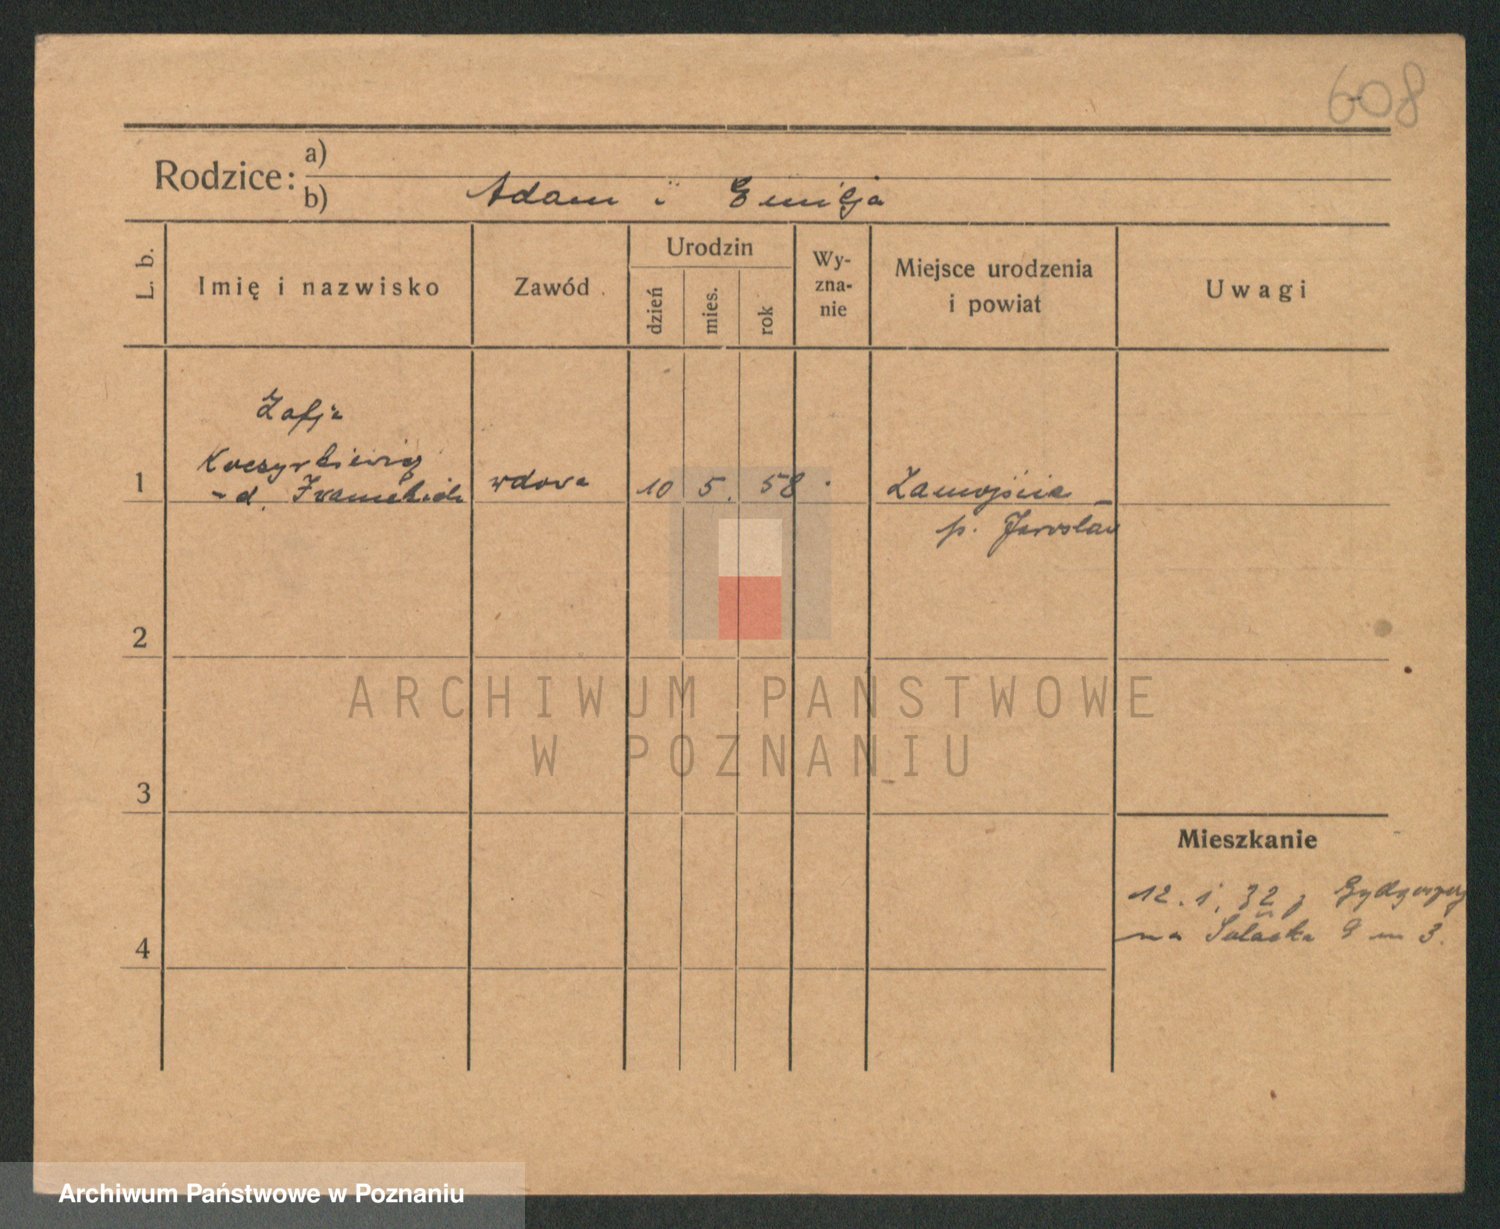 608
Rodzice:
a)
b) Adam i Emilja
L. b.
Imię i nazwisko
Zawód
Urodzin
dzień
mies.
rok
Wy-
zna-
nie
Miejsce urodzenia
i powiat
Uwagi
Zofja
1
wdowa
10 5. 58
Zamojsce –
p. Jarosław
2
3
4
Mieszkanie
12. 1. 32 z Bydgoszczy
na Sołacka 9 m 3.
ARCHIWUM PAŃSTWOWE
W POZNANIU
Archiwum Państwowe w Poznaniu